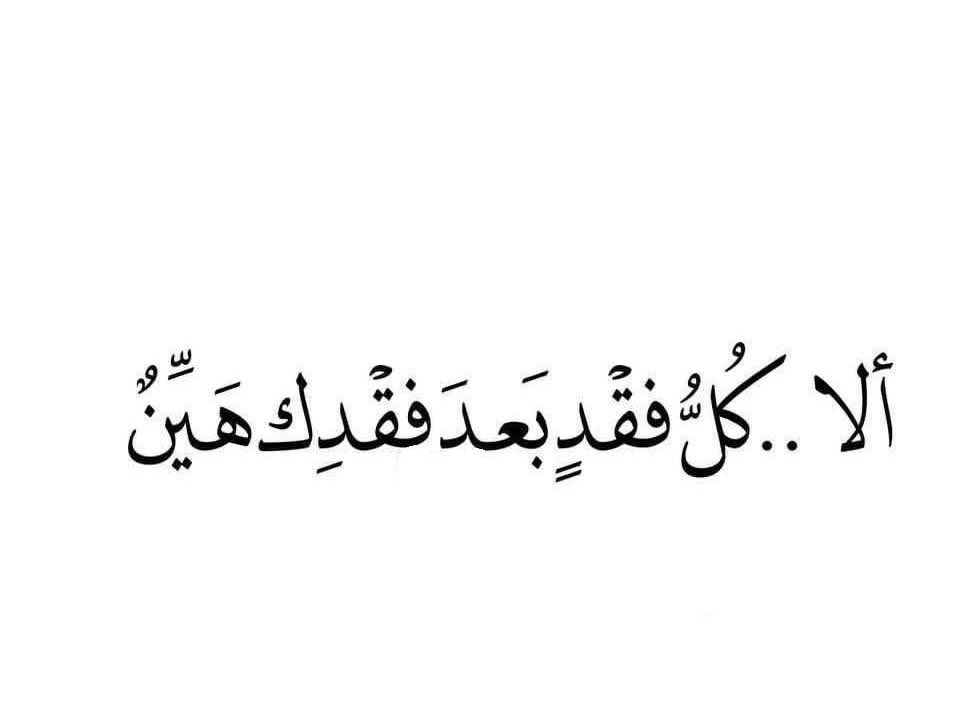 ألا ..كُلُّ فقْدٍ بَعدَ فقْدِك هَيِّنٌ